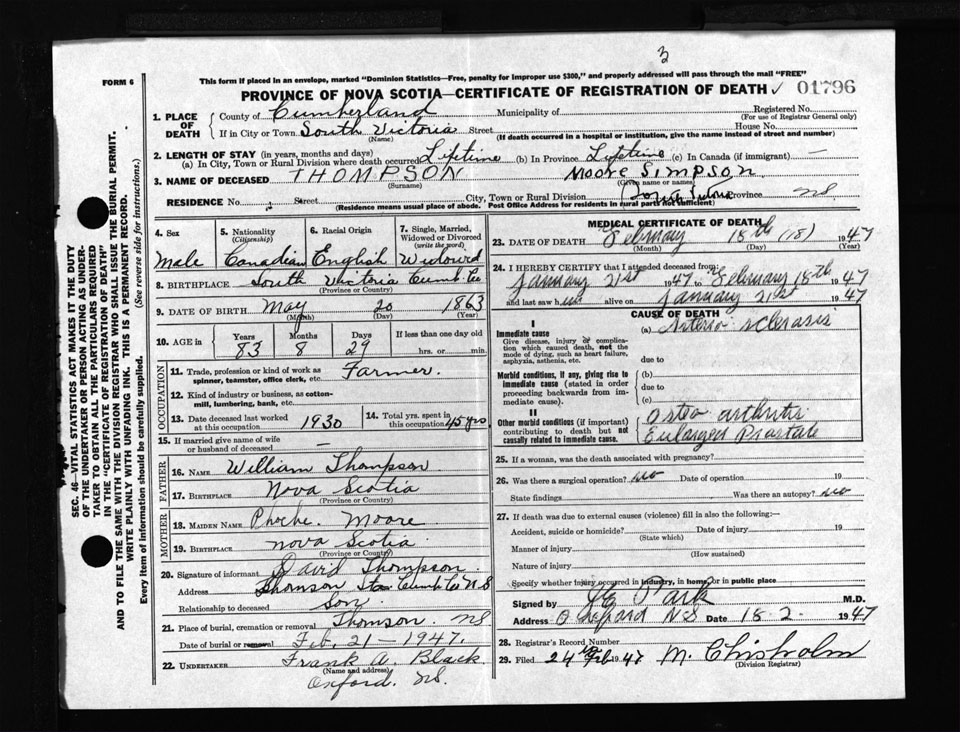 3
FORM 6
This form if placed in an envelope, marked "Dominion Statistics—Free, penalty for improper use $300," and properly addressed will pass through the mail "FREE"
PROVINCE OF NOVA SCOTIA—CERTIFICATE OF REGISTRATION OF DEATH ✓ 01796
SEC. 46—VITAL STATISTICS ACT MAKES IT THE DUTY
OF THE UNDERTAKER OR PERSON ACTING AS UNDER-
TAKER TO OBTAIN ALL THE PARTICULARS REQUIRED
IN THE "CERTIFICATE OF REGISTRATION OF DEATH"
AND TO FILE THE SAME WITH THE DIVISION REGISTRAR WHO SHALL ISSUE THE BURIAL PERMIT.
WRITE PLAINLY WITH UNFADING INK. THIS IS A PERMANENT RECORD.
Every item of Information should be carefully supplied. (See reverse side for instructions.)
1. PLACE OF DEATH
County of Cumberland Municipality of Registered No.
(For use of Registrar General only)
If in City or Town South Victoria Street House No.
(Name) (If death occurred in a hospital or institution, give the name instead of street and number)
2. LENGTH OF STAY (in years, months and days)
(a) In City, Town or Rural Division where death occurred Lifetime (b) In Province Lifetime (c) In Canada (if immigrant) —
3. NAME OF DECEASED THOMPSON Moore Simpson
(Surname) (Given name or names)
RESIDENCE No. Street City, Town or Rural Division South Victoria Province NS
(Residence means usual place of abode. Post Office Address for residents in rural parts not sufficient)
4. Sex Male
5. Nationality (Citizenship) Canadian
6. Racial Origin English
7. Single, Married, Widowed or Divorced (write the word) Widowed
8. BIRTHPLACE South Victoria Cumb Co
(Province or Country)
9. DATE OF BIRTH May 20 1863
(Month) (Day) (Year)
10. AGE in Years 83 Months 8 Days 29 If less than one day old hrs. or min.
OCCUPATION
11. Trade, profession or kind of work as spinner, teamster, office clerk, etc. Farmer.
12. Kind of industry or business, as cotton-mill, lumbering, bank, etc.
13. Date deceased last worked at this occupation 1930
14. Total yrs. spent in this occupation 45 yrs
15. If married give name of wife or husband of deceased —
FATHER
16. NAME William Thompson
17. BIRTHPLACE Nova Scotia
(Province or Country)
MOTHER
18. MAIDEN NAME Phoebe Moore
19. BIRTHPLACE Nova Scotia
(Province or Country)
20. Signature of informant David Thompson
Address Thomson Sta Cumb Co N S
Relationship to deceased Son
21. Place of burial, cremation or removal Thomson. NS
Date of burial or removal Feb. 21 - 1947.
22. UNDERTAKER Frank A. Black
(Name and address)
Oxford. NS.
MEDICAL CERTIFICATE OF DEATH
23. DATE OF DEATH February 18th (18) 1947
(Month) (Day) (Year)
24. I HEREBY CERTIFY that I attended deceased from:
January 21st 1947 to February 18th 1947
and last saw him alive on January 21st 1947
CAUSE OF DEATH
I
Immediate cause
Give disease, injury or complication which caused death, not the mode of dying, such as heart failure, asphyxia, asthenia, etc.
(a) Arterio-sclerosis
due to
Morbid conditions, if any, giving rise to immediate cause (stated in order proceeding backwards from immediate cause).
(b)
due to
(c)
II
Other morbid conditions (if important) contributing to death but not causally related to immediate cause.
Osteo arthritis
Enlarged Prostate
25. If a woman, was the death associated with pregnancy?
26. Was there a surgical operation? no Date of operation 19
State findings Was there an autopsy? no
27. If death was due to external causes (violence) fill in also the following:—
Accident, suicide or homicide? Date of injury 19
(State which)
Manner of injury
(How sustained)
Nature of injury
Specify whether injury occurred in industry, in home, or in public place
Signed by Park M.D.
Address Oxford NS Date 18.2. 1947
28. Registrar's Record Number
29. Filed 24th Feb 1947 M. Chisholm
(Division Registrar)